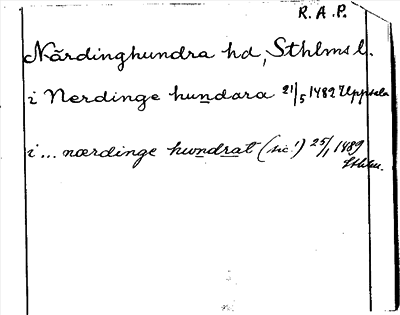 R. A. P.
Närdinghundra hd, Sthlms l.
i Nerdinge hundara 21/5 1482 Uppsala
i... nærdinge hwndrat (sic!) 25/1 1489
Sthlm.